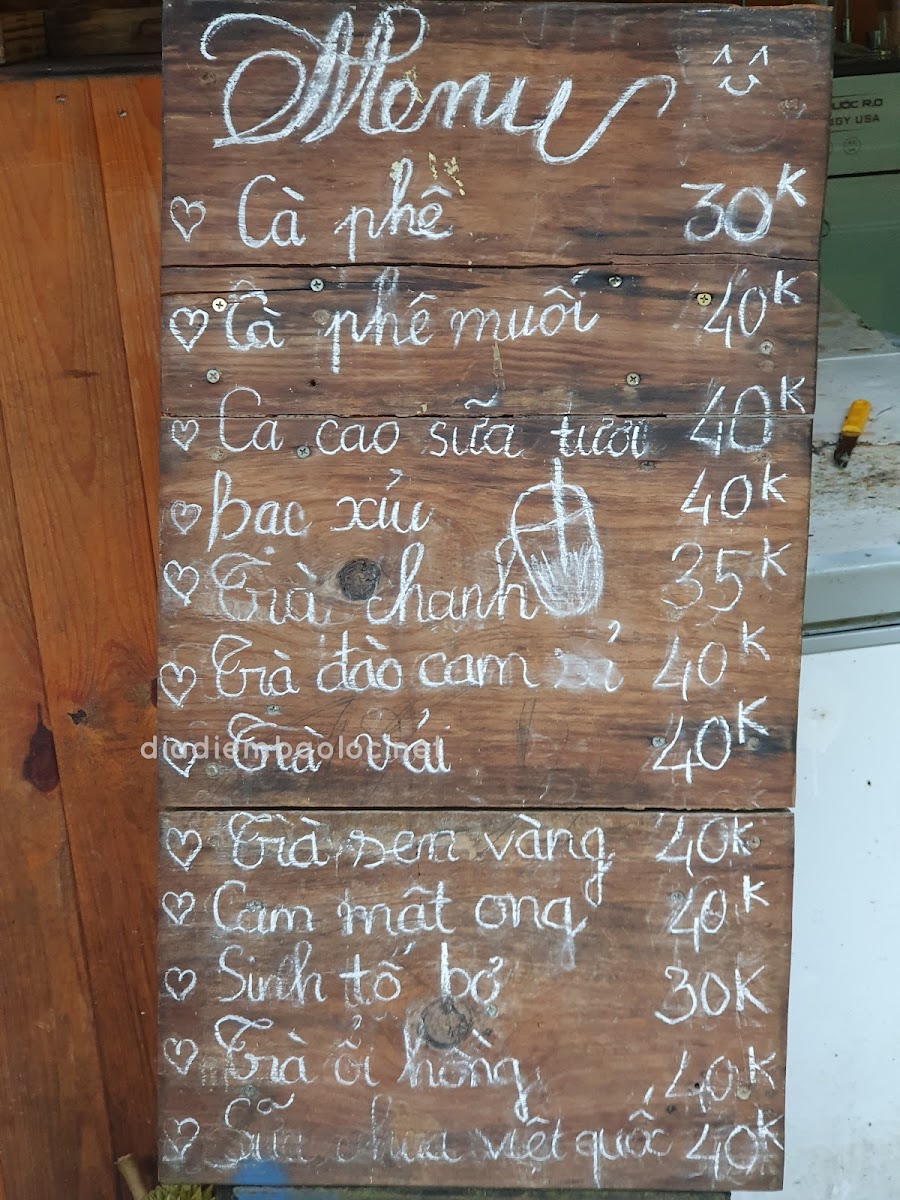 Menu
ƯỚC R.O
GY USA
Cà phê 30K
Cà phê muối 40K
Ca cao sữa tươi 40K
Bạc xỉu 40K
Trà chanh 35K
Trà đào cam sả 40K
Trà vải 40K
diadiembaoloc.net
Trà sen vàng 40K
Cam mật ong 40K
Sinh tố bơ 30K
Trà ổi hồng 40K
Sữa chua việt quốc 40K